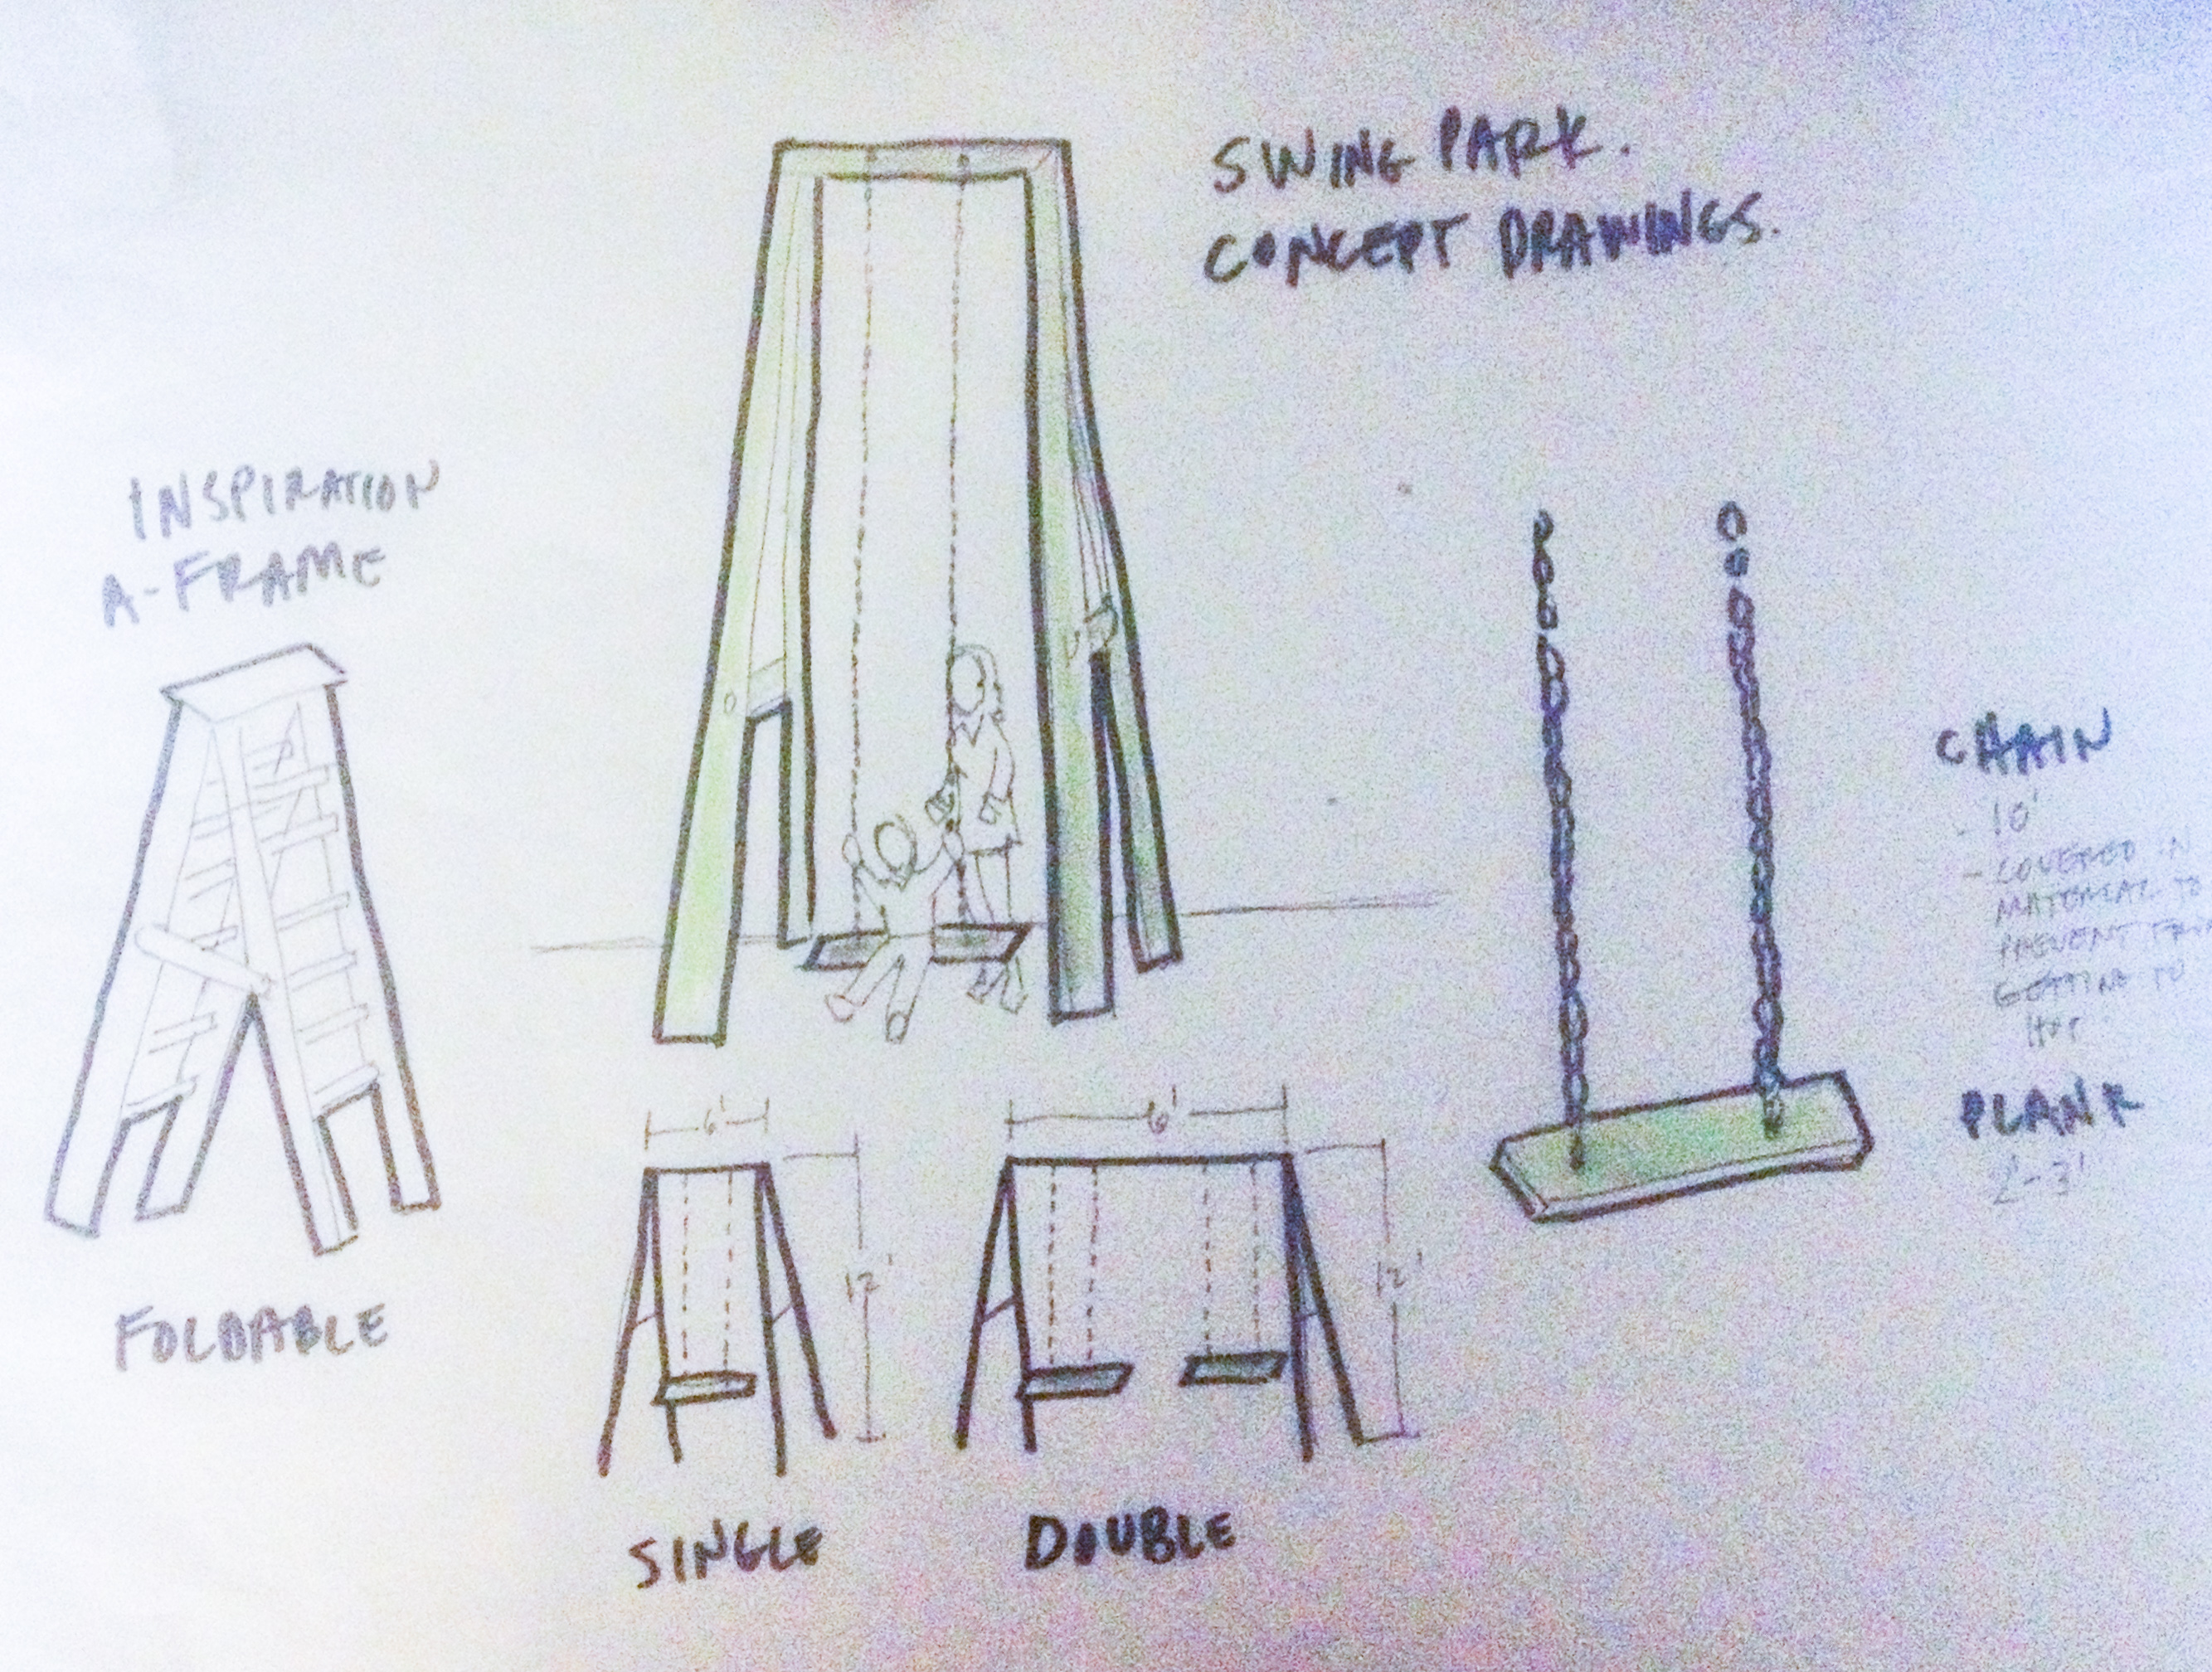 SWING PARK.
CONCEPT DRAWINGS.
INSPIRATION
A-FRAME
FOLDABLE
6'
12'
SINGLE
6'
12'
DOUBLE
CHAIN
- 10'
- COVERED IN
MATERIAL TO
PREVENT
GETTING TO
HOT
PLANK
2-3'